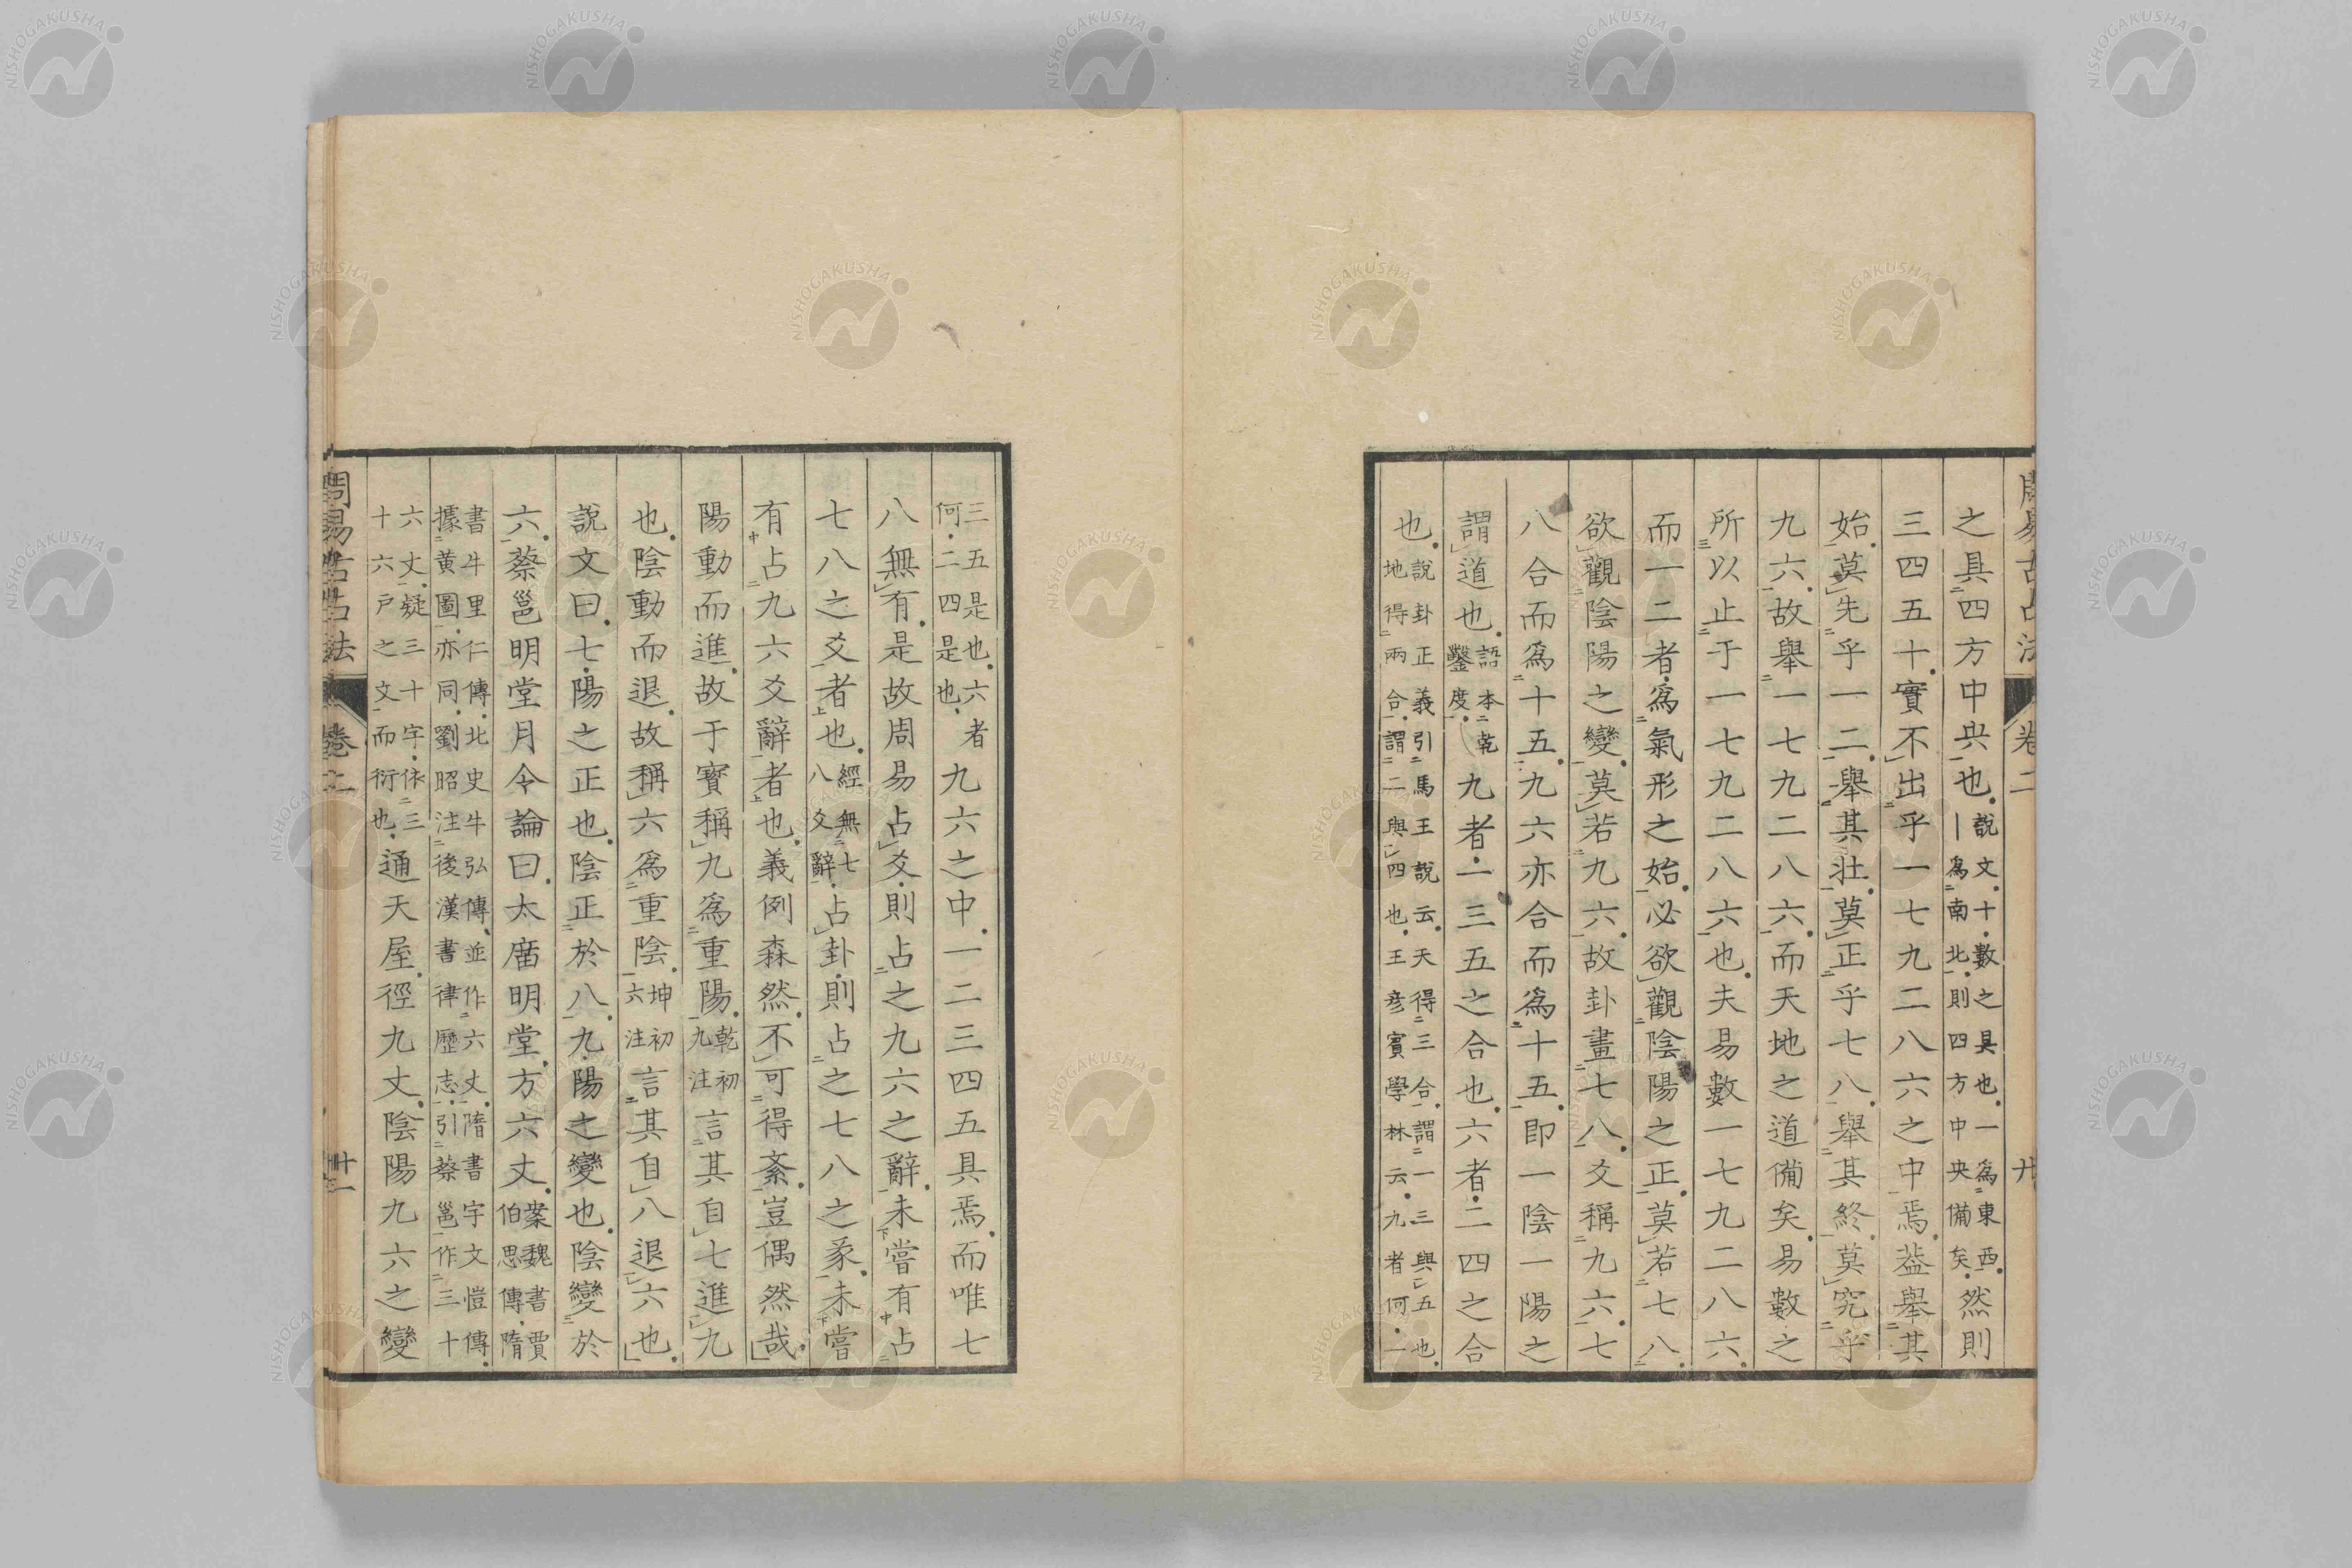 周易古占法 卷二 廿
之具四方中央也說文十數之具也一爲東西丨爲南北則四方中央備矣然則
三四五十實不出乎一七九二八六之中焉蓋舉其
始莫先乎一二舉其壯莫正乎七八舉其終莫究乎
九六故舉一七九二八六而天地之道備矣易數之
所以止于一七九二八六也夫易數一七九二八六
而一二者爲氣形之始必欲觀陰陽之正莫若七八
欲觀陰陽之變莫若九六故卦畫七八爻稱九六七
八合而爲十五九六亦合而爲十五即一陰一陽之
謂道也語本乾鑿度九者一三五之合也六者二四之合
也說卦正義引馬王說云天得三合謂一三與五也地得兩合謂二與四也王彥實學林云九者何一
三五是也六者何二四是也九六之中一二三四五具焉而唯七
八無有是故周易占爻則占之九六之辭未嘗有占
七八之爻者也經無七八爻辭占卦則占之七八之彖未嘗
有占九六爻辭者也義例森然不可得紊豈偶然哉
陽動而進故于寳稱九爲重陽乾初九注言其自七進九
也陰動而退故稱六爲重陰坤初六注言其自八退六也
說文曰七陽之正也陰正於八九陽之變也陰變於
六蔡邕明堂月令論曰太庿明堂方六丈案魏書賈伯思傳隋
書牛里仁傳北史牛弘傳並作六丈隋書宇文愷傳據黄圖亦同劉昭注後漢書律歷志引蔡邕作三十
六丈疑三十字依三十六戸之文而衍也通天屋徑九丈陰陽九六之變
周易古占法 卷二